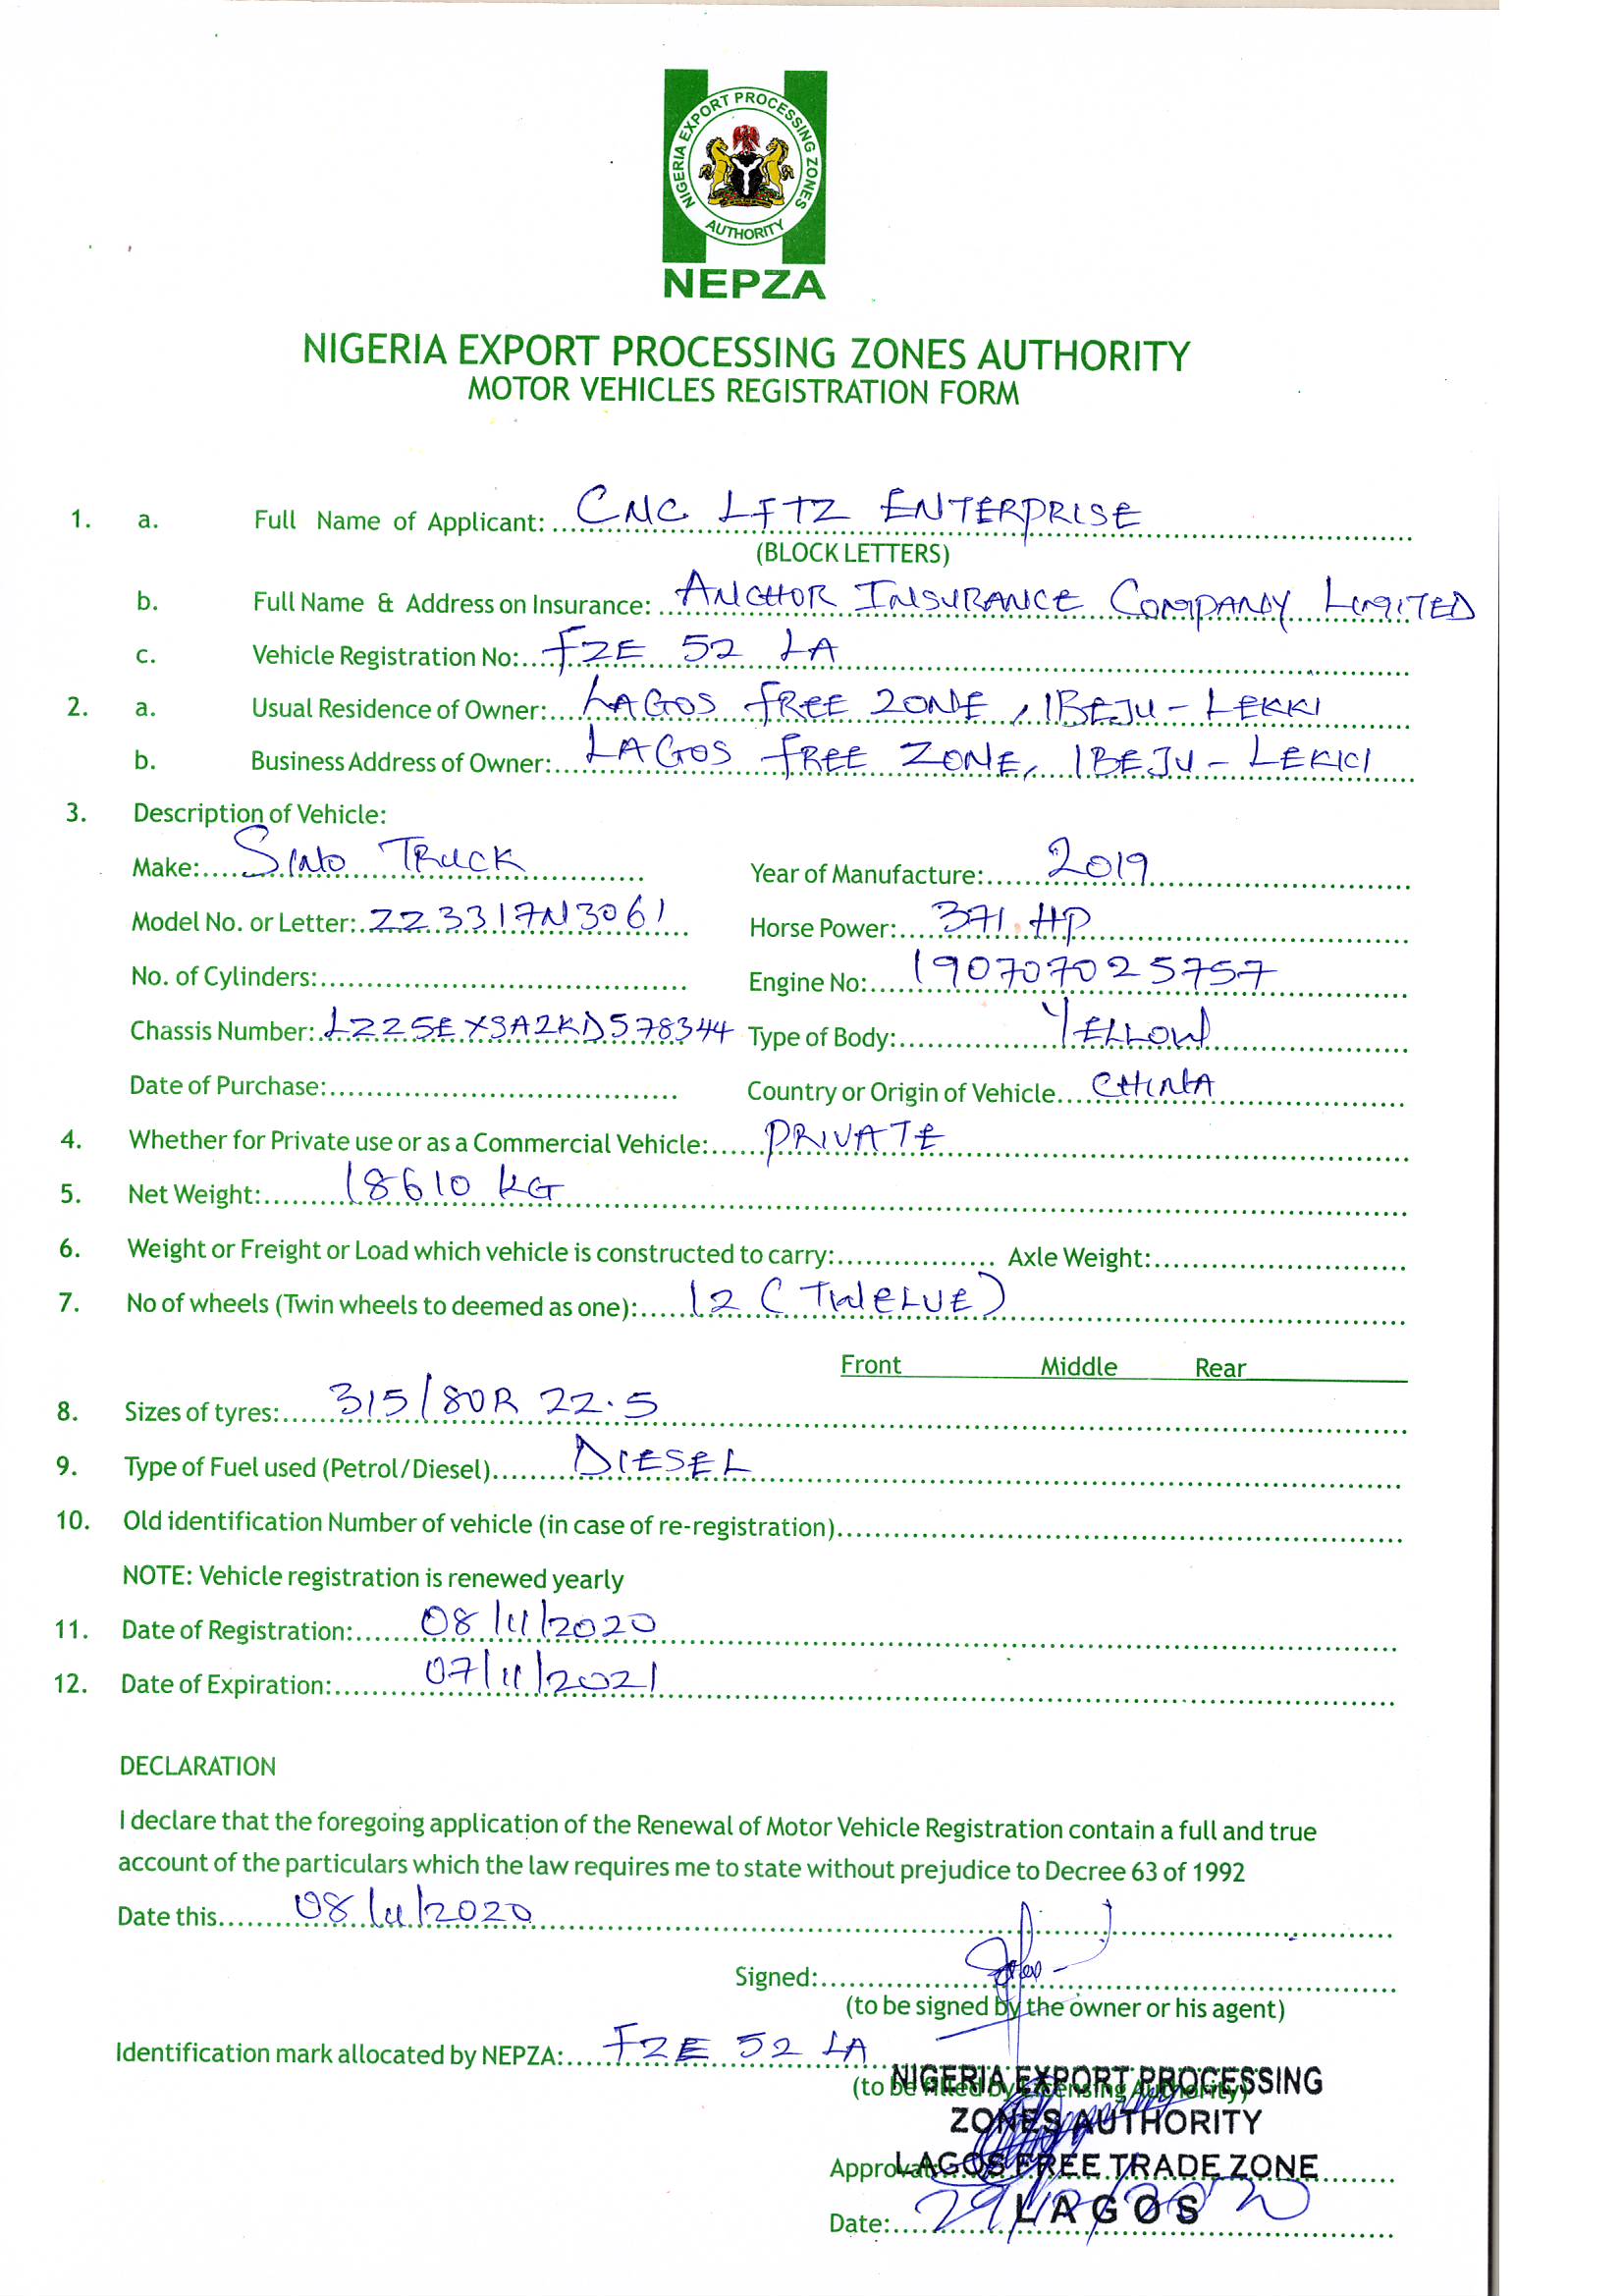 NIGERIA EXPORT PROCESSING ZONES
AUTHORITY
NEPZA
NIGERIA EXPORT PROCESSING ZONES AUTHORITY
MOTOR VEHICLES REGISTRATION FORM
1. a. Full Name of Applicant: CNC LFTZ ENTERPRISE
(BLOCK LETTERS)
b. Full Name & Address on Insurance: ANCHOR INSURANCE COMPANY LIMITED
c. Vehicle Registration No: FZE 52 LA
2. a. Usual Residence of Owner: LAGOS FREE ZONE, IBEJU-LEKKI
b. Business Address of Owner: LAGOS FREE ZONE, IBEJU-LEKKI
3. Description of Vehicle:
Make: SINO TRUCK Year of Manufacture: 2019
Model No. or Letter: ZZ3317N3061 Horse Power: 371 HP
No. of Cylinders: Engine No: 190707025757
Chassis Number: LZZ5EXSA2KD578344 Type of Body: YELLOW
Date of Purchase: Country or Origin of Vehicle CHINA
4. Whether for Private use or as a Commercial Vehicle: PRIVATE
5. Net Weight: 18610 KG
6. Weight or Freight or Load which vehicle is constructed to carry: Axle Weight:
7. No of wheels (Twin wheels to deemed as one): 12 (TWELVE)
Front Middle Rear
8. Sizes of tyres: 315/80R 22.5
9. Type of Fuel used (Petrol/Diesel) DIESEL
10. Old identification Number of vehicle (in case of re-registration)
NOTE: Vehicle registration is renewed yearly
11. Date of Registration: 08/11/2020
12. Date of Expiration: 07/11/2021
DECLARATION
I declare that the foregoing application of the Renewal of Motor Vehicle Registration contain a full and true
account of the particulars which the law requires me to state without prejudice to Decree 63 of 1992
Date this 08/11/2020
Signed:
(to be signed by the owner or his agent)
Identification mark allocated by NEPZA: FZE 52 LA
(to be filled by Licensing Authority)
NIGERIA EXPORT PROCESSING
ZONES AUTHORITY
Approval: LAGOS FREE TRADE ZONE
LAGOS
Date: